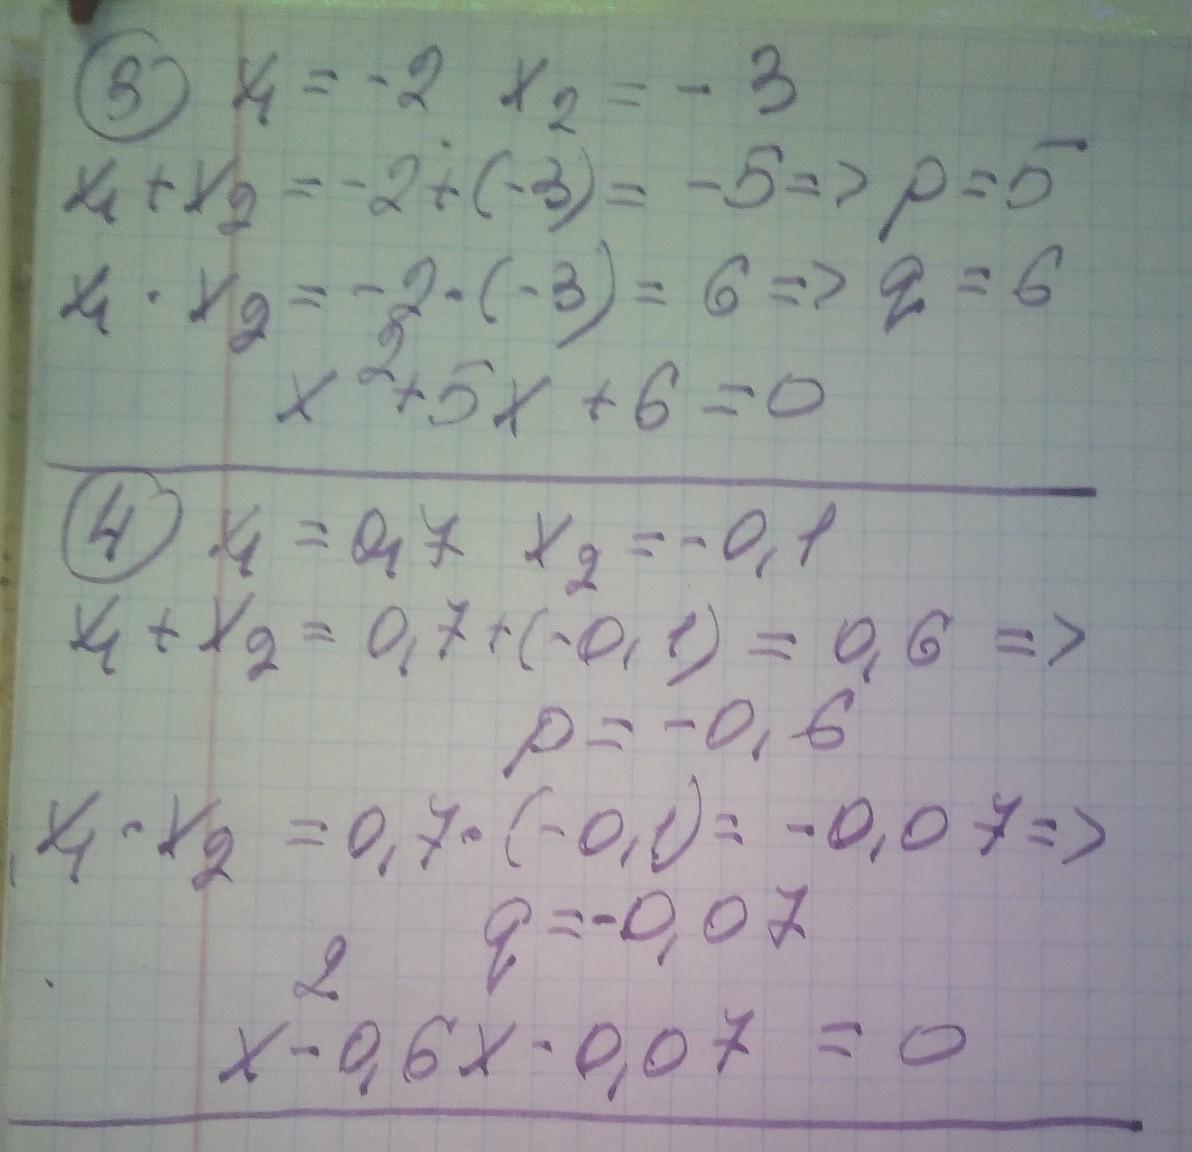 ③ x₁ = -2 x₂ = - 3
x₁ + x₂ = -2 + (-3) = -5 => p = 5
x₁ · x₂ = -2 · (-3) = 6 => q = 6
x² + 5x + 6 = 0
④ x₁ = 0,7 x₂ = -0,1
x₁ + x₂ = 0,7 + (-0,1) = 0,6 =>
p = -0,6
x₁ · x₂ = 0,7 · (-0,1) = -0,07 =>
q = -0,07
x² - 0,6x - 0,07 = 0